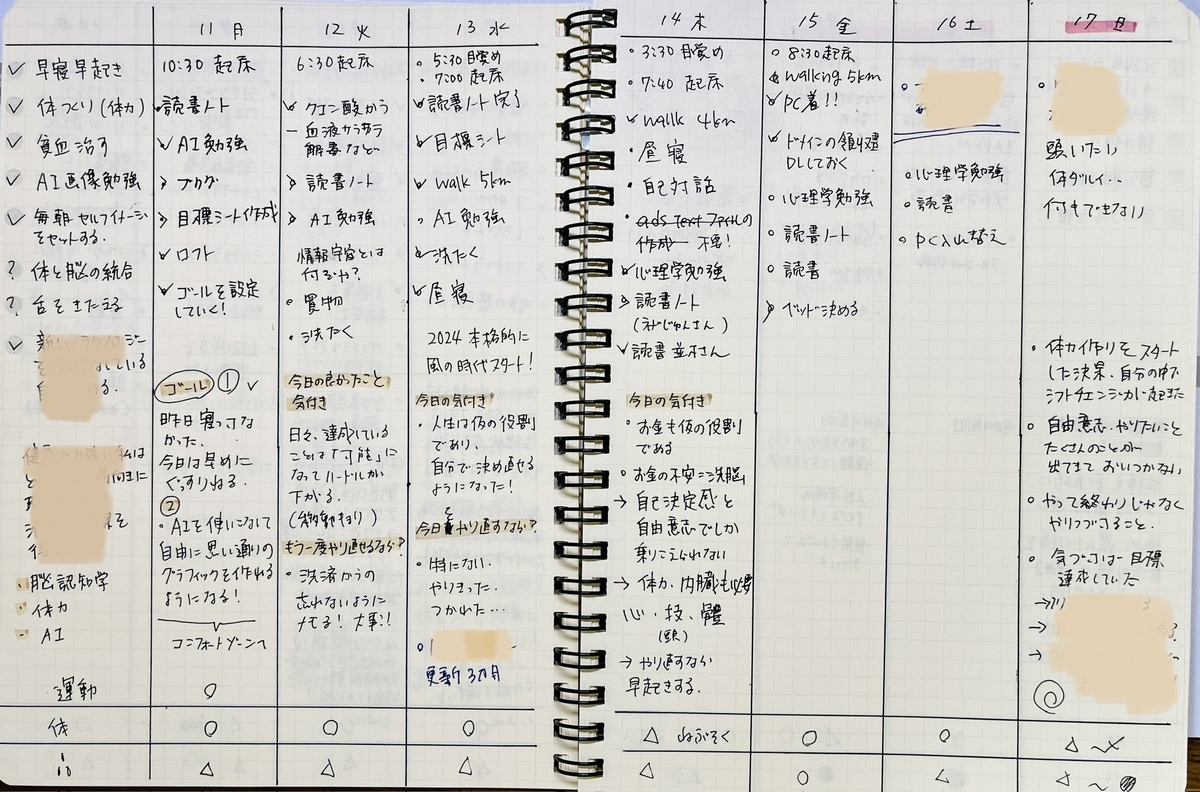 11 月
12 火
13 水
14 木
15 金
16 土
17 日
早寝早起き
体づくり(体力)
貧血治す
AI画像勉強
毎朝セルフイメージ
をセットする.
? 体と脳の統合
? 舌をきたえる
脳認知学
体力
AI
運動
体
心
10:30 起床
読書ノート
AI勉強
ブログ
目標シート作成
ロフト
ゴールを設定
していく!
ゴール ①
昨日寝ってな
かった.
今日は早めに
ぐっすりねる.
②
・AIを使いこなして
自由に思い通りの
グラフィックを作れる
ようになる!
コンフォートゾーンへ
○
○
△
6:30起床
クエン酸かう
血液サラサラ
解毒など
読書ノート
AI勉強
情報宇宙とは
何ぞや?
買物
・洗たく
今日の良かったこと
気付き
日々、達成している
ことは「可能」に
なってハードルが
下がる.
もう一度やり直せるなら?
・決済からの
忘れないように
メモる! 大事!!
○
△
5:30 目覚め
・7:00 起床
読書ノート完了
目標シート
walk 5km
AI勉強
洗たく
昼寝
2024 本格的に
風の時代スタート!
今日の気付き
・人生は仮の役割
であり、
自分で決め直せる
ようになった!
今日やり直すなら?
・特にない.
やりきった.
つかれた…
更新 3カ月
○
△
3:30 目覚め
7:40 起床
walk 4km
・昼寝
・自己対話
ads textファイルの
作成 不要!
心理学勉強
読書ノート
読書 並木さん
今日の気付き
・お金も仮の役割
である
・お金の不安=洗脳
→ 自己決定感と
自由意志でしか
乗りこえられない
→ 体力、内臓も必要
心・技・體
(頭)
→ やり直すなら
早起きする.
△ ねぶそく
△
8:30起床
walking 5km
PC着!!
ドメインの領収書
DLしておく
心理学勉強
・読書ノート
・読書
ベッド決める
○
○
・心理学勉強
・読書
・PC入れ替え
○
△
頭いたい
体ダルイ…
何もできない
・体力作りをスタート
した決果、自分の中で
シフトチェンジが起きた
・自由意志、やりたいこと
たくさんのことが
出てきて おいつかない
・やって終わりじゃなく
やりつづけること.
・気づけば目標
達成していた
△
△